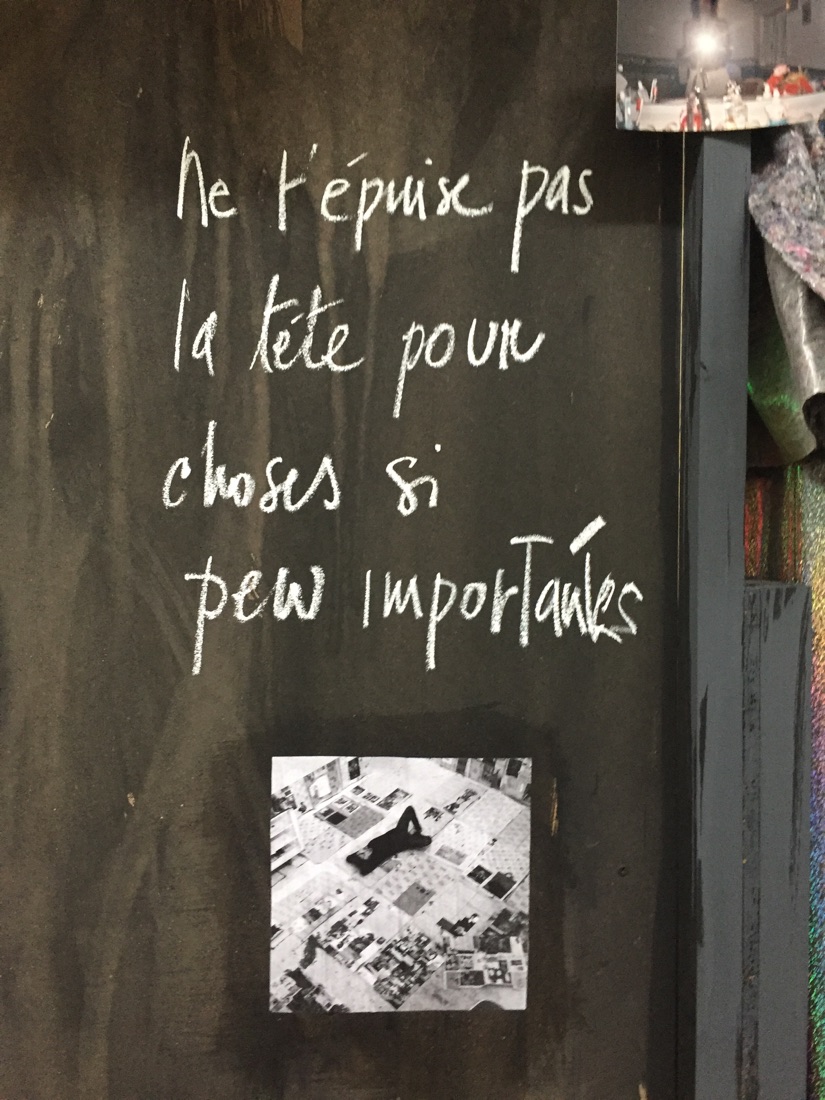 ne t'épuise pas
la téte pour
choses si
peu importantes